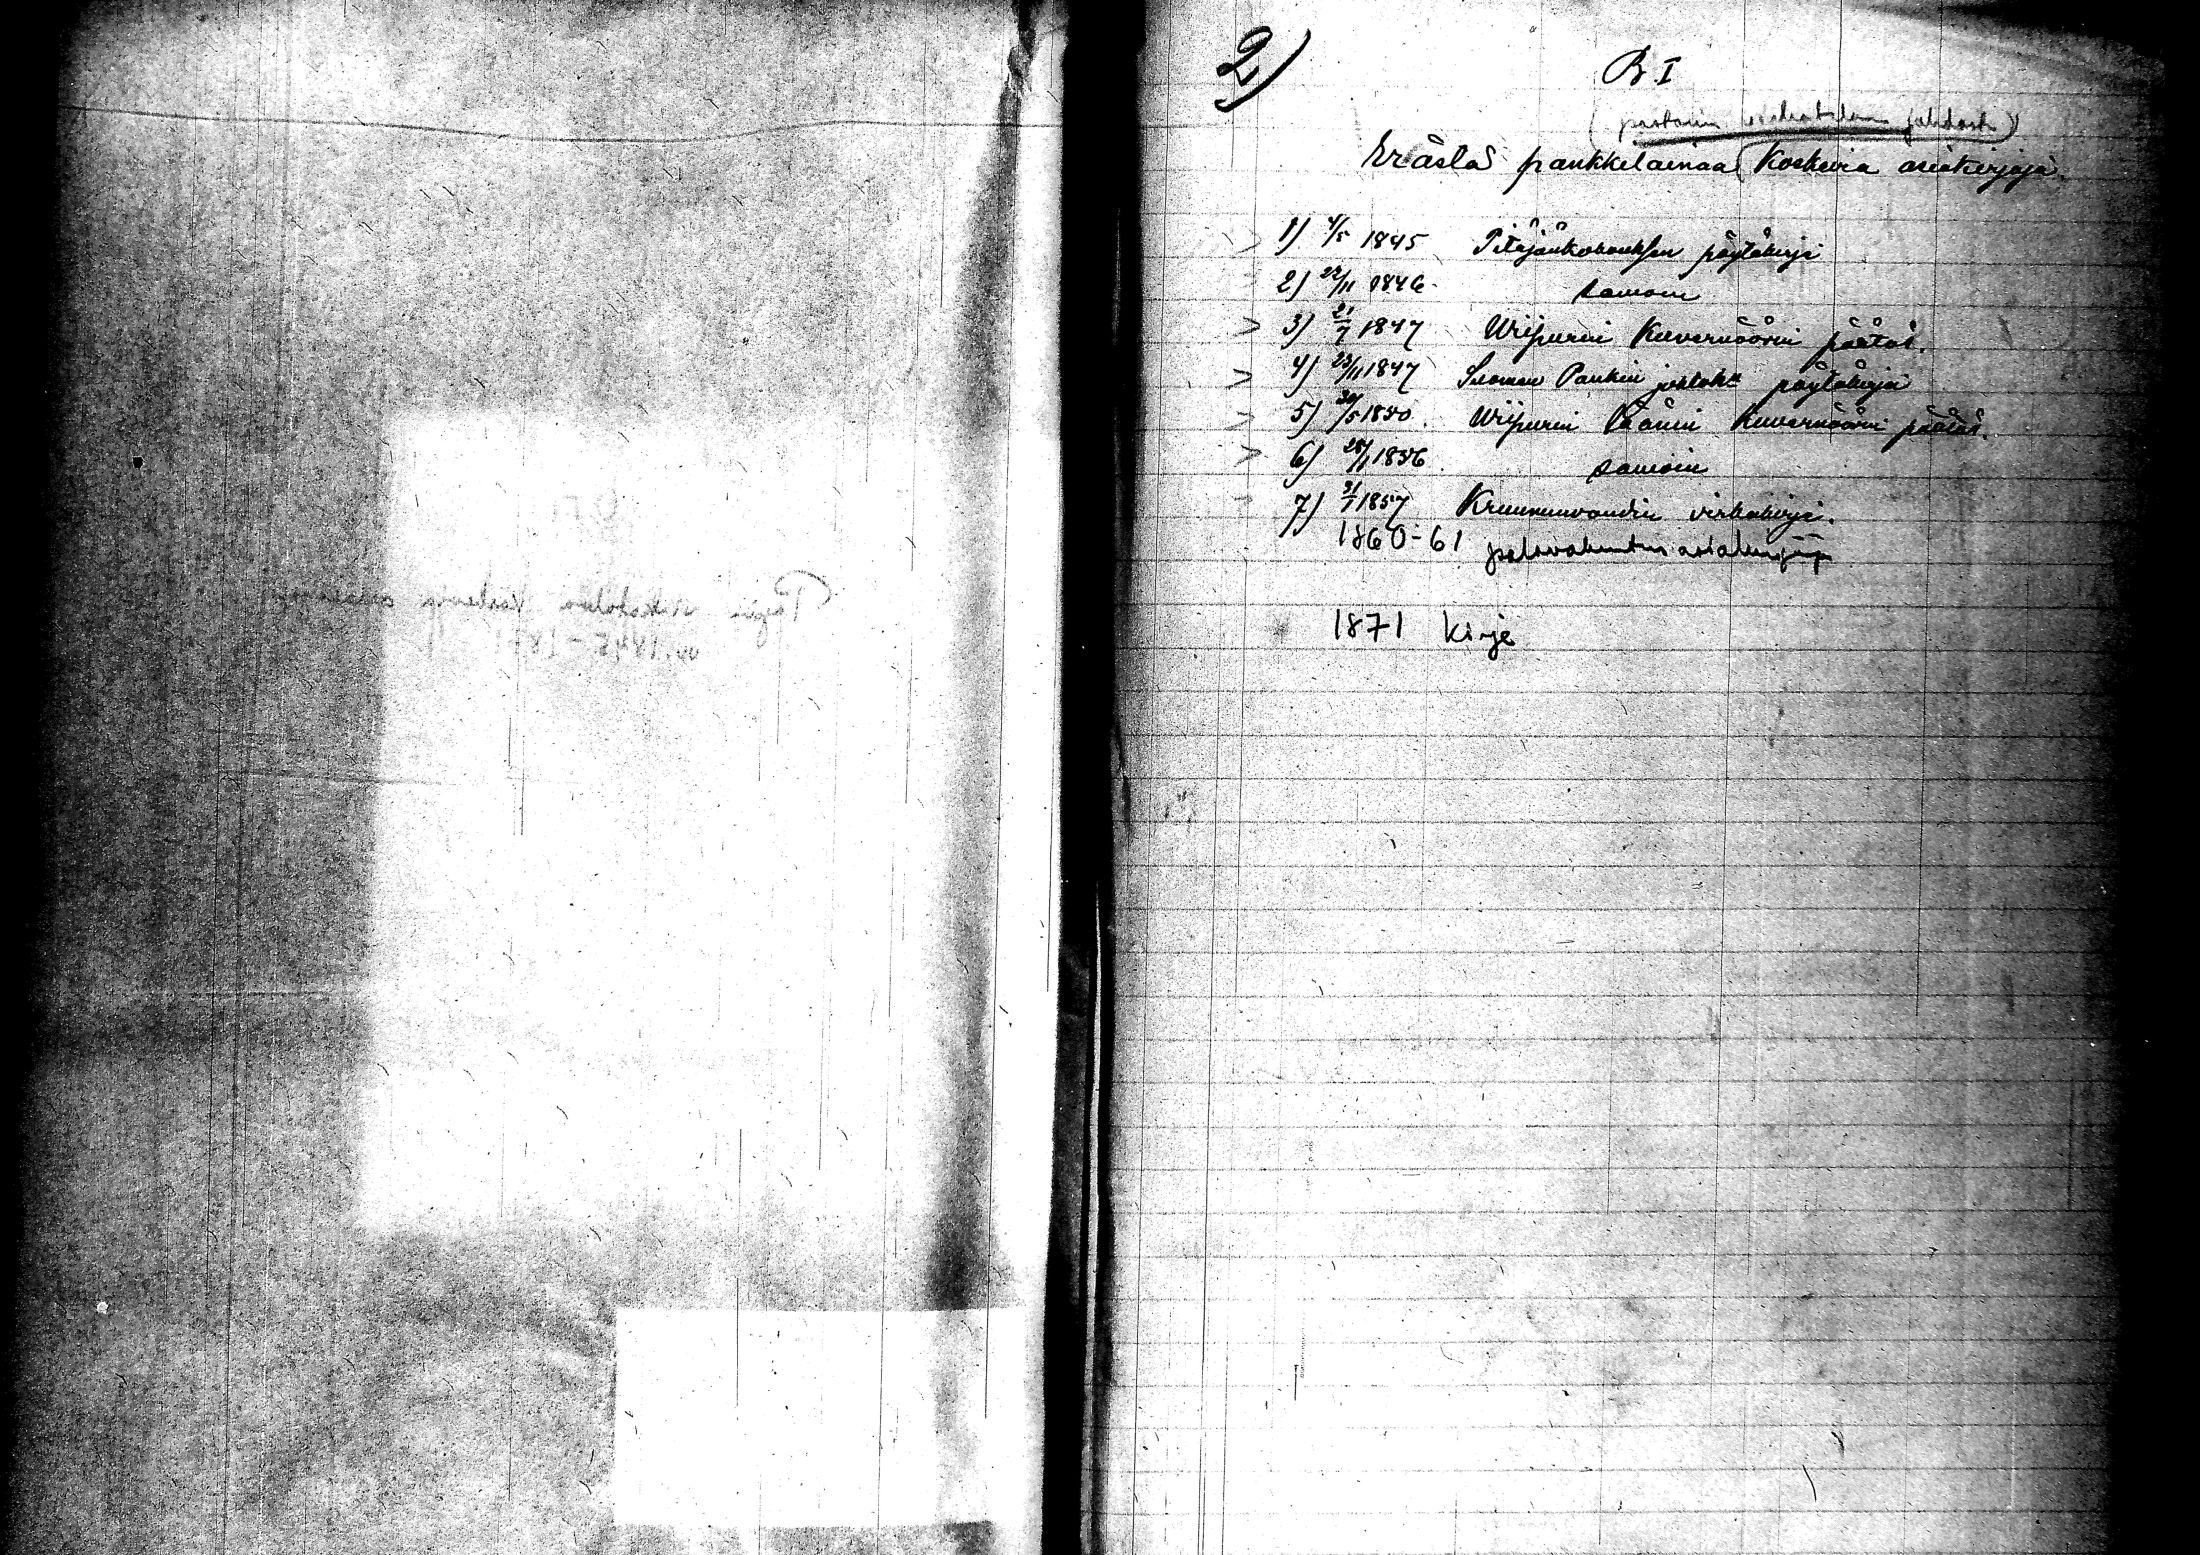 2)
B.I
(pastorin virkatalon johdosta)
Erästä pankkilainaa koskevia asiakirjoja.
1) 4/5 1845 Pitäjänkokouksen pöytäkirja
2) 22/11 1846. samoin
3) 21/7 1847 Wiipurin Kuvernöörin päätös.
4) 23/11 1847 Suomen Pankin johtok. pöytäkirja
5) 30/5 1850. Wiipurin läänin Kuvernöörin päätös.
6) 28/1 1856 samoin
7) 31/1 1857 Kruununvoudin virkakirje.
1860-61 palovakuutus asiakirjoja
1871 kirje